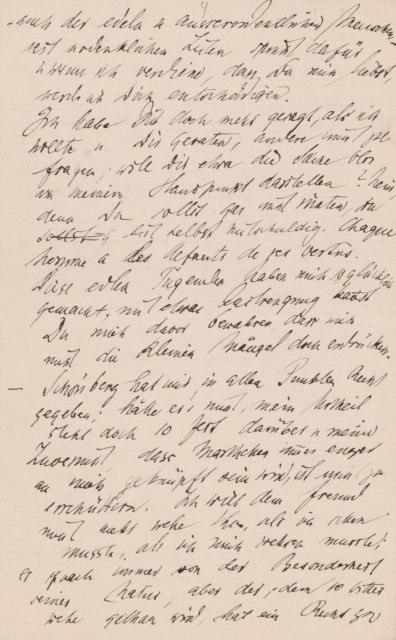 auch der edeln u ausserordentlichen Menschen
sert ordentlichen Zeiten spricht dafür
u wenn ich verdiene, dass Du mich liebst,
werde ich Dich entschädigen.
Ich habe Dir doch mehr gesagt, als ich
wollte u Dir geraten, andere nicht zu
fragen; will Dir etwa die Sache blos
von meinem Standpunkt darstellen? Nein
denn Du sollst gar nicht urteilen Du
bist selbst mitschuldig. Chaque
homme a des defauts de ses vertus.
Diese edlen Tugenden haben mich so glücklich
gemacht, mit etwas Anstrengung
Du mich davor bewahren dass mich
nicht die kleinen Mängel doch erdrücken.
— Schönberg hat mir in allen Punkten Recht
gegeben; hätte er's nicht, mein Urteil
steht doch so fest darüber u meine
Zuversicht, dass Marthchen immer enger
an mich geknüpft sein wird, ist nicht zu
erschüttern. Ich will dem Freund
nicht mehr wehe tun, als ich schon
musste, als ich mich wehren musste;
er sprach immer von der Besonderheit
seines Falles, aber der, dem so bitter
wehe gethan wird, hat ein Recht zu